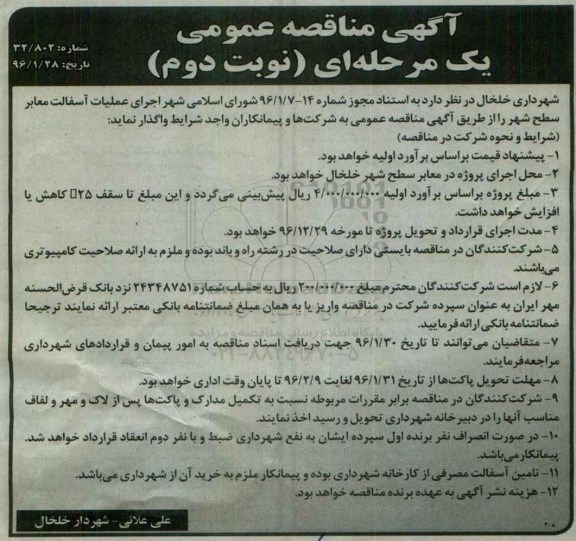 آگهی مناقصه عمومی
یک مرحله‌ای (نوبت دوم)
شماره: ۳۲/۸۰۲
تاریخ: ۹۶/۱/۲۸
شهرداری خلخال در نظر دارد به استناد مجوز شماره ۱۴-۹۶/۱/۷ شورای اسلامی شهر اجرای عملیات آسفالت معابر
سطح شهر را از طریق آگهی مناقصه عمومی به شرکت‌ها و پیمانکاران واجد شرایط واگذار نماید:
(شرایط و نحوه شرکت در مناقصه)
۱- پیشنهاد قیمت براساس برآورد اولیه خواهد بود.
۲- محل اجرای پروژه در معابر سطح شهر خلخال خواهد بود.
۳- مبلغ پروژه براساس برآورد اولیه ۴/۰۰۰/۰۰۰/۰۰۰ ریال پیش‌بینی می‌گردد و این مبلغ تا سقف ۲۵ کاهش یا
افزایش خواهد داشت.
۴- مدت اجرای قرارداد و تحویل پروژه تا مورخه ۹۶/۱۲/۲۹ خواهد بود.
۵- شرکت‌کنندگان در مناقصه بایستی دارای صلاحیت در رشته راه و باند بوده و ملزم به ارائه صلاحیت کامپیوتری
می‌باشند.
۶- لازم است شرکت‌کنندگان محترم مبلغ ۲۰۰/۰۰۰/۰۰۰ ریال به حساب شماره ۲۴۳۴۸۷۵۱ نزد بانک قرض‌الحسنه
مهر ایران به عنوان سپرده شرکت در مناقصه واریز یا به همان مبلغ ضمانتنامه بانکی معتبر ارائه نمایند ترجیحا
ضمانتنامه بانکی ارائه فرمایید.
۷- متقاضیان می‌توانند تا تاریخ ۹۶/۱/۳۰ جهت دریافت اسناد مناقصه به امور پیمان و قراردادهای شهرداری
مراجعه فرمایند.
۸- مهلت تحویل پاکت‌ها از تاریخ ۹۶/۱/۳۱ لغایت ۹۶/۲/۹ تا پایان وقت اداری خواهد بود.
۹- شرکت‌کنندگان در مناقصه برابر مقررات مربوطه نسبت به تکمیل مدارک و پاکت‌ها پس از لاک و مهر و لفاف
مناسب آنها را در دبیرخانه شهرداری تحویل و رسید اخذ نمایند.
۱۰- در صورت انصراف نفر برنده اول سپرده ایشان به نفع شهرداری ضبط و با نفر دوم انعقاد قرارداد خواهد شد.
پیمانکار می‌باشد.
۱۱- تامین آسفالت مصرفی از کارخانه شهرداری بوده و پیمانکار ملزم به خرید آن از شهرداری می‌باشد.
۱۲- هزینه نشر آگهی به عهده برنده مناقصه خواهد بود.
علی علائی- شهردار خلخال
۲۰۸